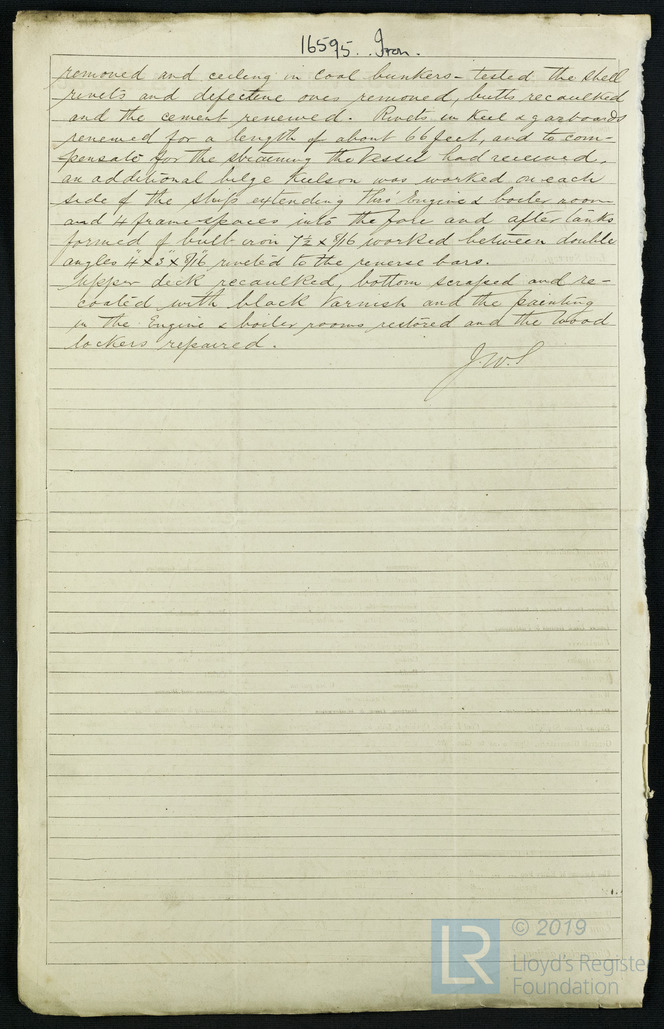 16595. Iron.
removed and ceiling in coal bunkers - tested the shell
rivets and defective ones removed, butts recaulked
and the cement renewed. Rivets in Keel & garboards
renewed for a length of about 66 feet, and to com-
pensate for the straining the Vessel had received,
an additional bilge Keelson was worked on each
side of the ship extending thro' Engine & boiler room
and 4 frame spaces into the fore and after tanks
formed of bulb iron 7½ x 8/16 worked between double
angles 4 x 3 x 8/16 riveted to the reverse bars.
Upper deck recaulked, bottom scraped and re-
coated with black varnish and the painting
in the Engine & boiler rooms restored and the wood
lockers repaired.
J.W.S
© 2019
Lloyd's Registe
Foundation
LR